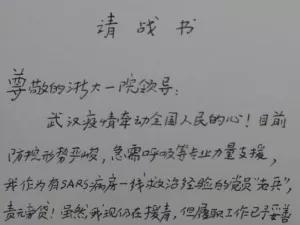 请战书
尊敬的浙大一院领导:
武汉疫情牵动全国人民的心!目前
防控形势严峻,急需呼吸等专业力量支援,
我作为有SARS病房一线救治经验的党员“老兵”,
责无旁贷!虽然我现仍在援青,但履职工作已予妥善